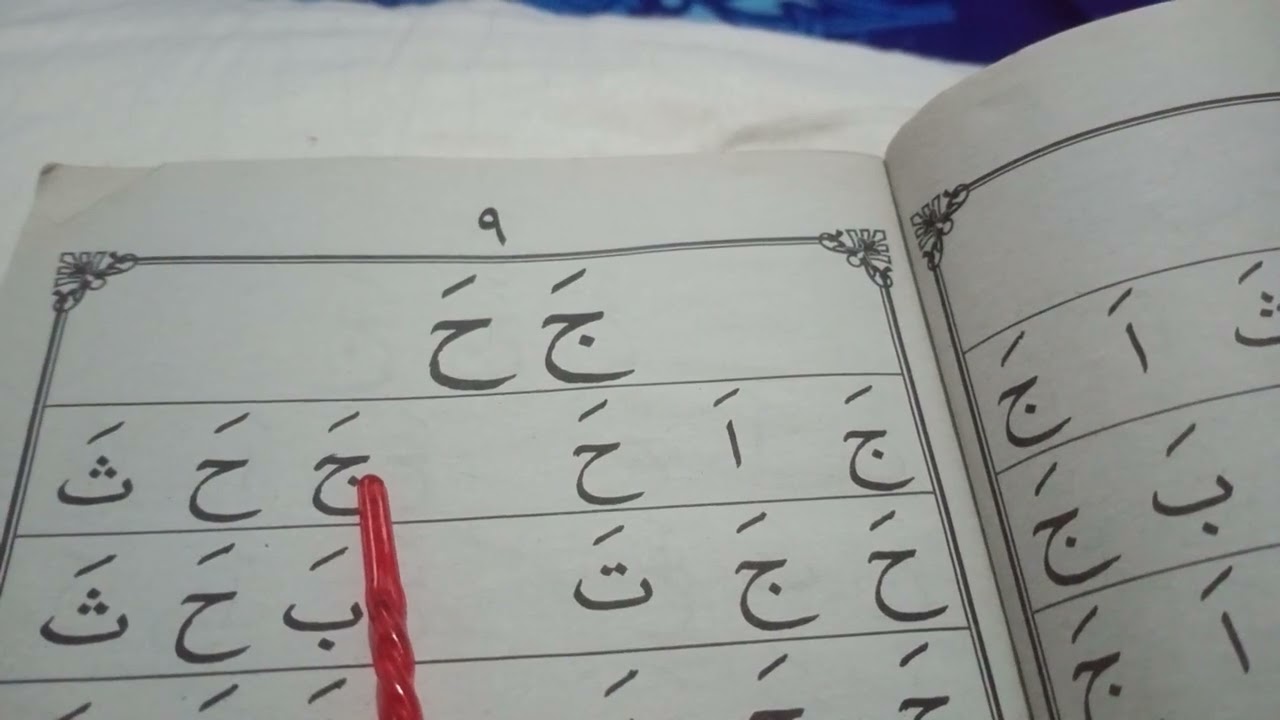 ٩
جَ حَ
جَ اَ حَ جَ حَ ثَ
حَ جَ تَ بَ حَ ثَ
ثَ اَ جَ
بَ جَ
اَ جَ